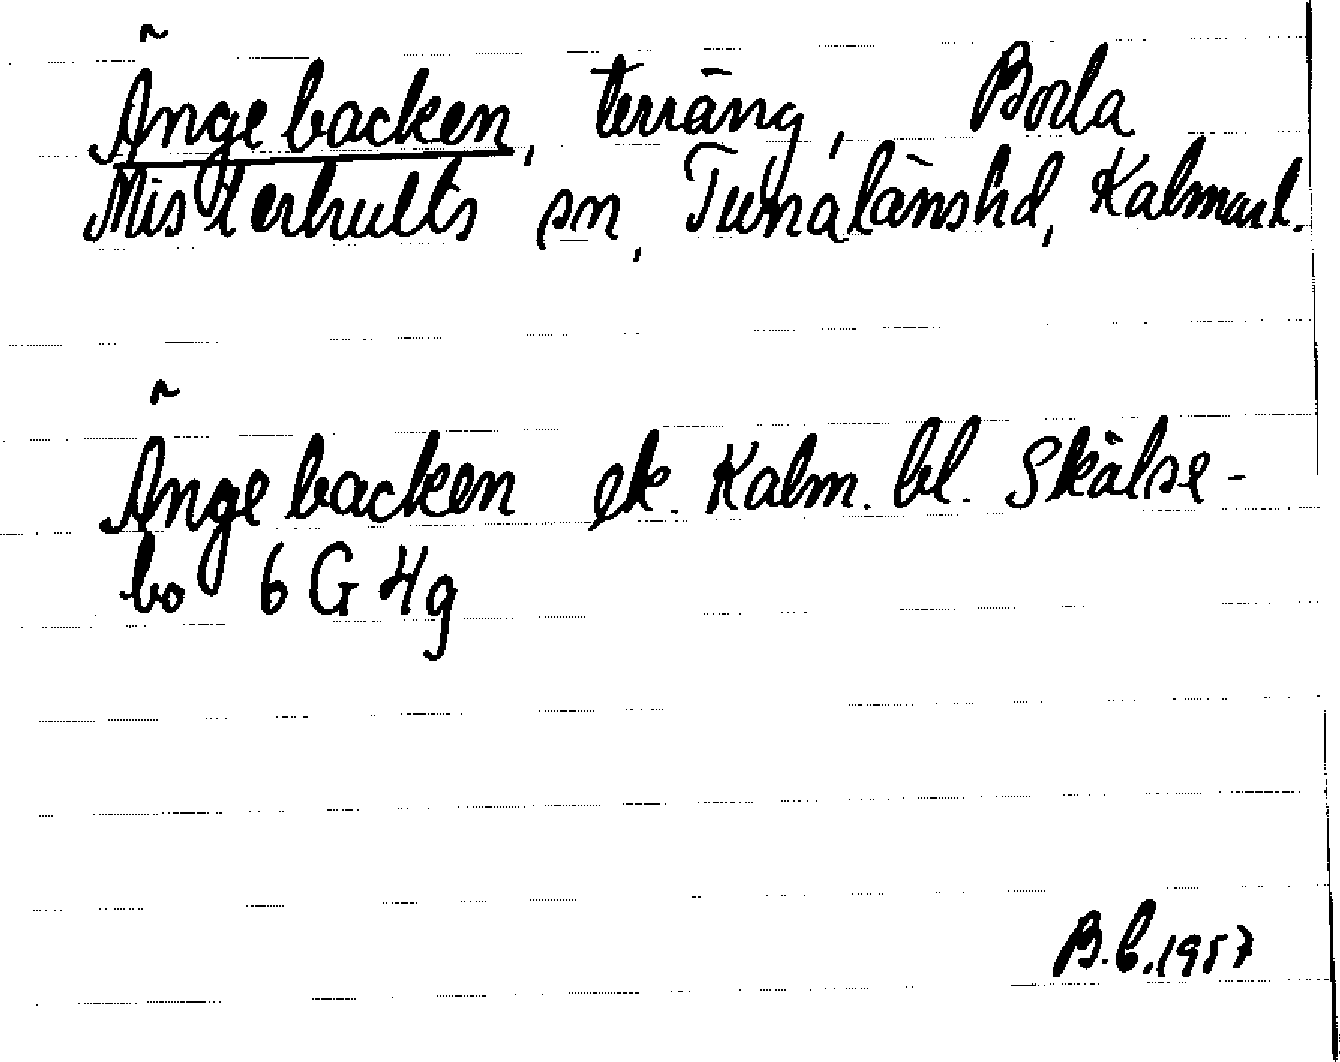 Ängebacken, terräng, Boda
Misterhults sn, Tunalänshd, Kalmar l.
Ängebacken ek. Kalm. bl. Skälse-
bo 6 G 4g
B.b. 1957